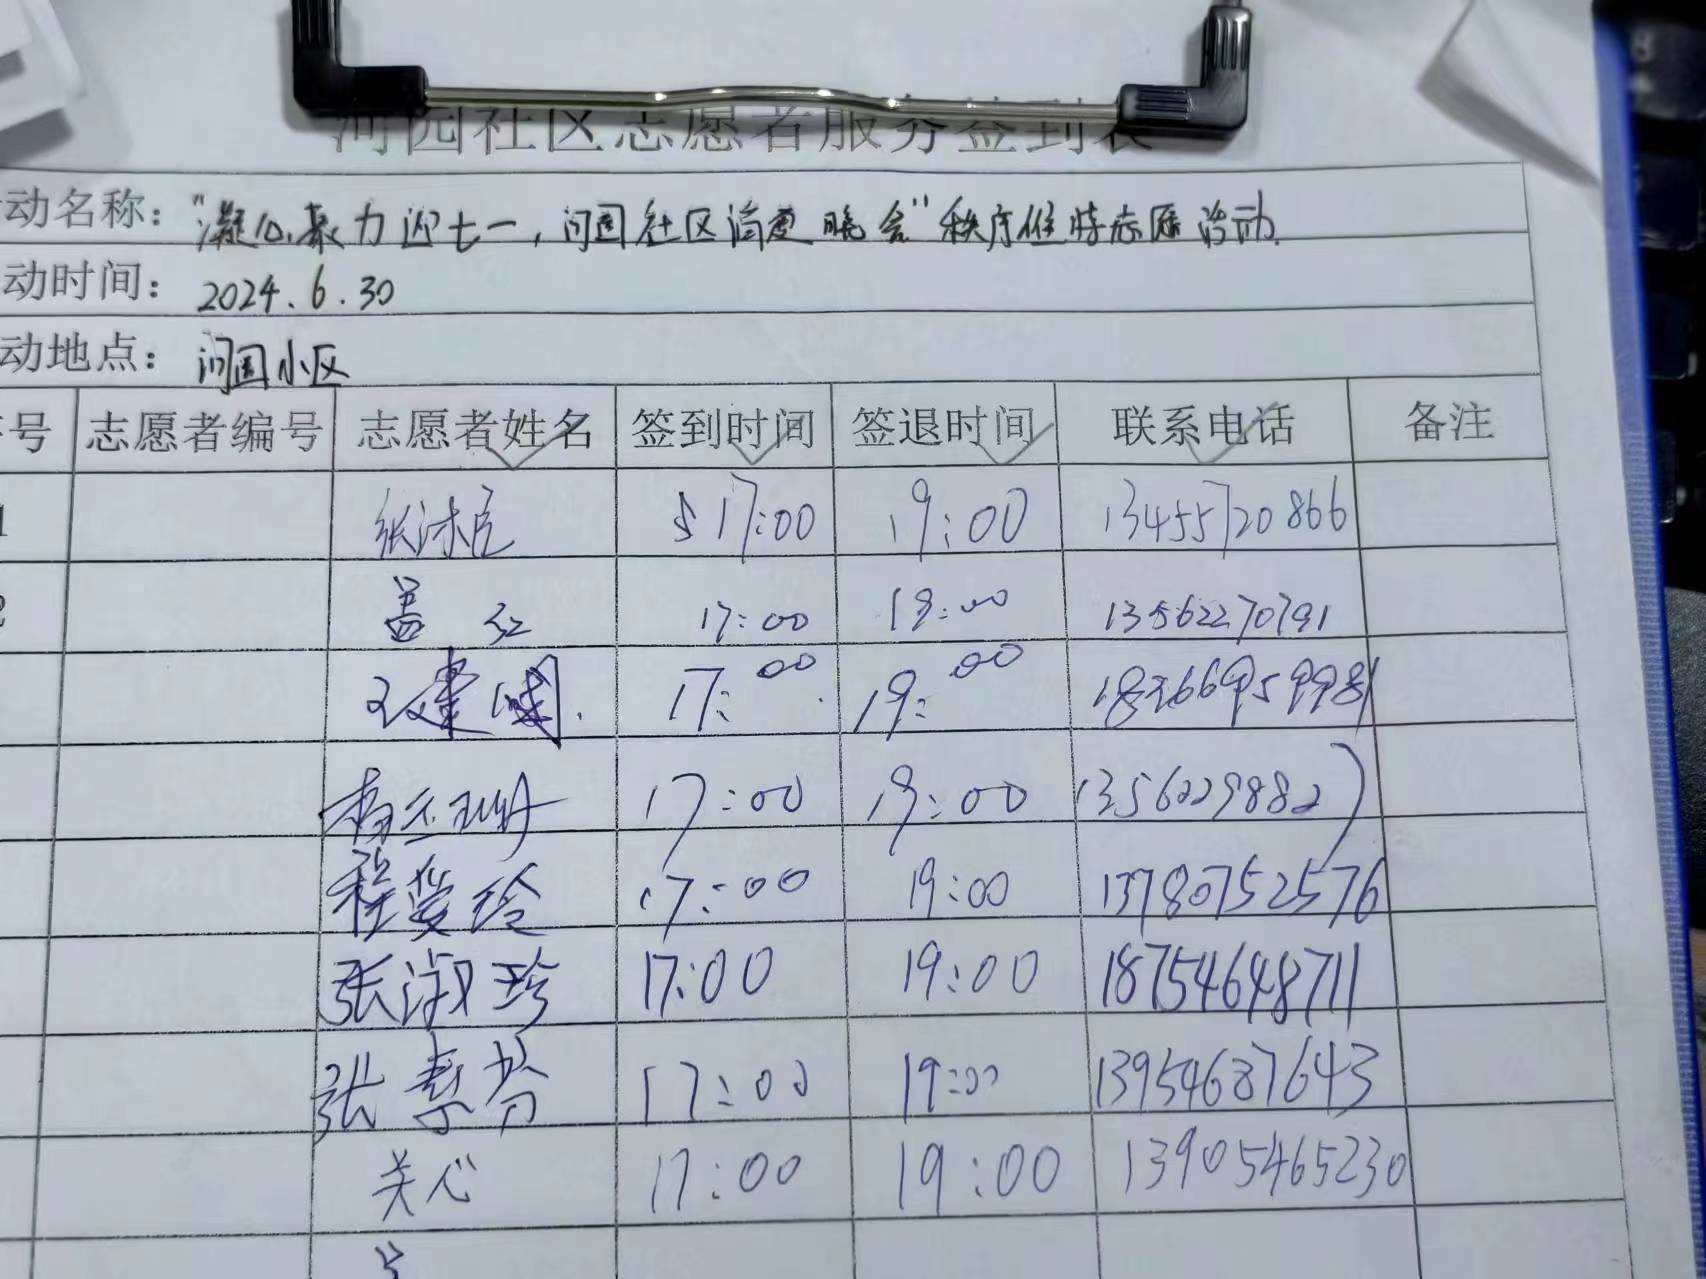 河园社区志愿者服务签到表
动名称："凝心聚力迎七一，河园社区消夏晚会"秩序维持志愿活动.
动时间：2024.6.30
动地点：河园小区
序号 志愿者编号 志愿者姓名 签到时间 签退时间 联系电话 备注
1 张沭臣 17:00 19:00 13455720866
2 盖红 17:00 19:00 13562270791
王建国. 17:00 19:00 18366959981
杨 17:00 19:00 13562298827
程爱玲 17:00 19:00 13780752576
张淑珍 17:00 19:00 18754648711
张春芬 17:00 19:00 13954687643
关心 17:00 19:00 13905465230